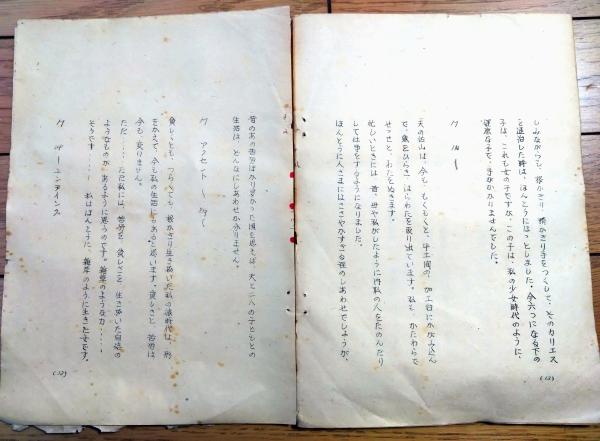 しみながらも、根かぎり 精かぎり手をつくして、そのカリエス
を退治した時は、ほんとうにほっとしました。今六つになる下の
子は、これも女の子ですが、この子は、私の少女時代のように、
健康な子で、手がかかりませんでした。
M
夫の佑山は、今も、もくもくと、牛土間の、加工台にかがみ込ん
で、魚をひらき、はらわたを取り出しています。私も、かたわらで
せっせと、わたをぬきます。
忙しいときには、昔、母や私がしたように 内職の人をたのんだり
して仕事をするようになりました。
ほんとうに人さまにはささやかすぎる程のしあわせでしょうが、
(12)
昔のあの苦労ばかり多かった頃を思えば、夫と二人の子どもとの
生活は、どんなにしあわせか分りません。
M アクセント
貧しくとも、つらくても、根かぎり生き抜いた私の娘時代は、形
をかえて、今も私の生活にもあると思います。貧しさと、苦労は
今も、変りません。
ただ‥‥ ただ私には、苦労を、貧しさを、生き抜いた自信の
ようなものが、あるように思うのです。雑草のような力‥‥
そうです‥‥ 私はほんとうに、雑草のように生きた女です。
M エンディング